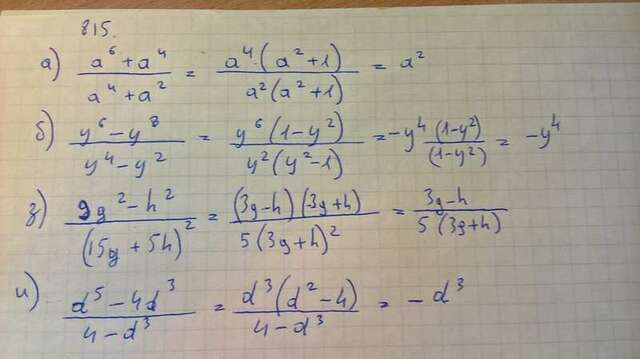 815.
а) (a⁶ + a⁴)/(a⁴ + a²) = (a⁴(a² + 1))/(a²(a² + 1)) = a²
б) (y⁶ − y⁸)/(y⁴ − y²) = (y⁶(1 − y²))/(y²(y² − 1)) = −y⁴ (1 − y²)/(1 − y²) = −y⁴
з) (9g² − h²)/(15g + 5h)² = ((3g − h)(3g + h))/(5(3g + h)²) = (3g − h)/(5(3g + h))
и) (d⁵ − 4d³)/(4 − d³) = (d³(d² − 4))/(4 − d³) = −d³